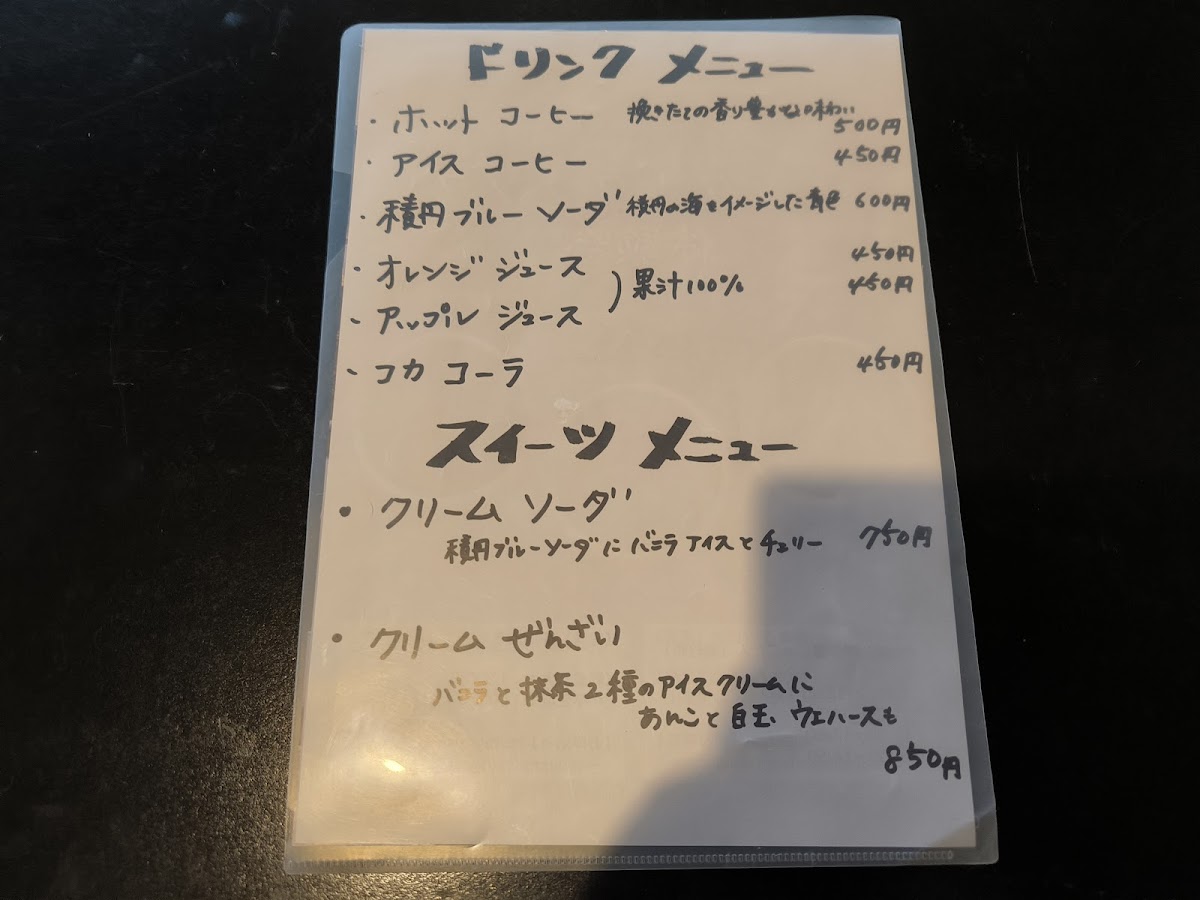 ドリンク メニュー
・ホット コーヒー 挽きたての香り豊かな味わい
500円
・アイス コーヒー 450円
・積丹ブルー ソーダ 積丹の海をイメージした青色 600円
・オレンジ ジュース 450円
)果汁100% 450円
・アップル ジュース
・コカ コーラ 450円
スイーツ メニュー
・クリーム ソーダ
積丹ブルーソーダに バニラアイスとチェリー 750円
・クリーム ぜんざい
バニラと抹茶2種のアイスクリームに
あんこと白玉、ウエハースも
850円